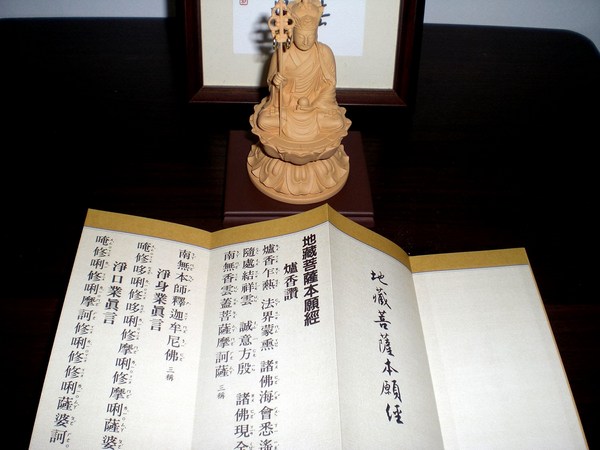 地藏菩薩本願經
地藏菩薩本願經
爐香讚
爐香乍爇 法界蒙熏 諸佛海會悉遙
隨處結祥雲 誠意方殷 諸佛現全
南無香雲蓋菩薩摩訶薩 三稱
南無本師釋迦牟尼佛 三稱
淨身業眞言
唵修哆唎修哆唎修摩唎修摩唎薩婆
淨口業眞言
唵修唎修唎摩訶修唎修修唎薩婆訶